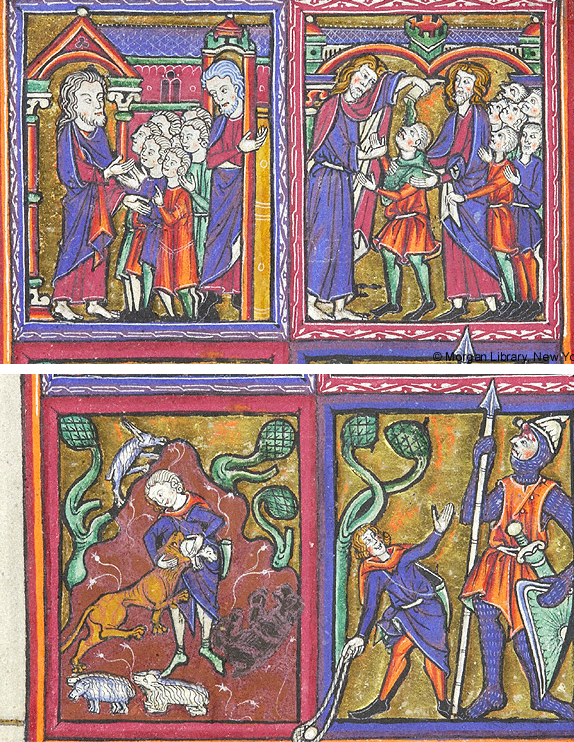 © Morgan Library, New Yo